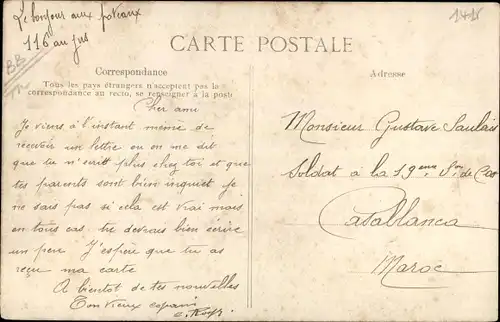 Le bonjour aux poteaux
116 au jus
BB
CARTE POSTALE
Correspondance
Tous les pays étrangers n'acceptent pas la
correspondance au recto, se renseigner à la poste
Adresse
Cher ami
Je viens à l'instant même de
recevoir un lettre ou on me dit
que tu n'ecrit plus chez toi et que
tes parents sont bien inquiet je
ne sais pas si cela est vrai mais
en tous cas tu devrais bien écrire
un peu. J'espère que tu as
reçu ma carte
A bientot de tes nouvelles
Ton vieux copain
Monsieur Gustave Saulais
Soldat à la 19eme Son de
Casablanca
Maroc